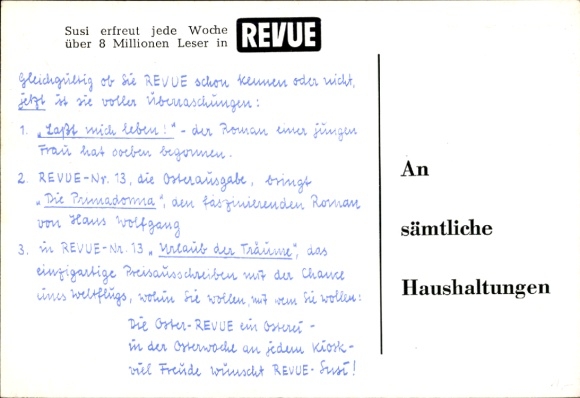 Susi erfreut jede Woche
über 8 Millionen Leser in REVUE
Gleichgültig ob Sie REVUE schon kennen oder nicht,
jetzt ist sie voller Überraschungen:
1. „Laßt mich leben!" - der Roman einer jungen
Frau hat soeben begonnen.
2. REVUE-Nr. 13, die Osterausgabe, bringt
„Die Primadonna", den faszinierenden Roman
von Hans Wolfgang
3. in REVUE-Nr. 13 „Urlaub der Träume", das
einzigartige Preisausschreiben mit der Chance
eines Weltflugs, wohin Sie wollen, mit wem Sie wollen:
Die Oster-REVUE ein Osterei -
in der Osterwoche an jedem Kiosk -
viel Freude wünscht REVUE-Susi!
An
sämtliche
Haushaltungen